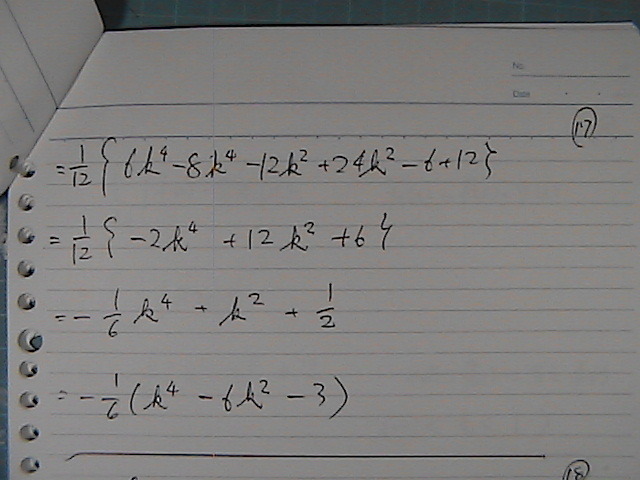 No.
Date
(17)
= 1/12 { 6k⁴ - 8k⁴ - 12k² + 24k² - 6 + 12 }
= 1/12 { -2k⁴ + 12k² + 6 }
= - 1/6 k⁴ + k² + 1/2
= - 1/6 (k⁴ - 6k² - 3)
(18)